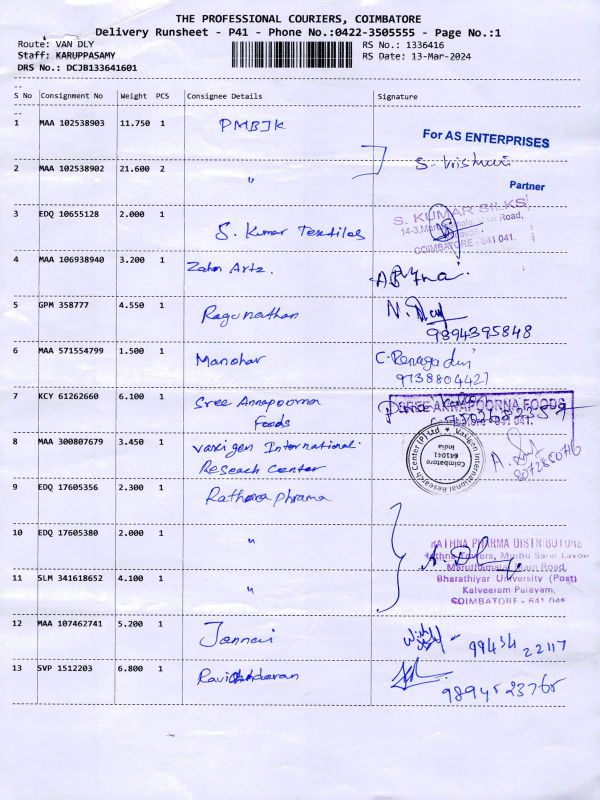 THE PROFESSIONAL COURIERS, COIMBATORE
Delivery Runsheet - P41 - Phone No.:0422-3505555 - Page No.:1
Route: VAN DLY
RS No.: 1336416
Staff: KARUPPASAMY
RS Date: 13-Mar-2024
DRS No.: DCJB133641601
S No Consignment No Weight PCS Consignee Details Signature
1 MAA 102538903 11.750 1 PMBJK
For AS ENTERPRISES
2 MAA 102538902 21.600 2 "
S.
Partner
3 EDQ 10655128 2.000 1 S. Kumar Textiles
S. KUMAR SILKS
COIMBATORE - 641 041.
4 MAA 106938940 3.200 1
5 GPM 358777 4.550 1 Ragunathan
9894395848
6 MAA 571554799 1.500 1 Manohar
9738804421
7 KCY 61262660 6.100 1 Sree Annapoorna
Foods
SREE ANNAPOORNA FOODS
8 MAA 300807679 3.450 1 vaxigen International
Reseach Center
Vaxigen International Research Center (P) Ltd.
Coimbatore
641041
India
9 EDQ 17605356 2.300 1 Rathnaphrama
10 EDQ 17605380 2.000 1 "
RATHNA PHARMA DISTRIBUTORS
11 SLM 341618652 4.100 1 "
Maruthamalai Main Road,
Bharathiyar University (Post)
Kalveeram Palayam,
COIMBATORE - 641 046
12 MAA 107462741 5.200 1 Jannai
99434 22117
13 SVP 1512203 6.800 1